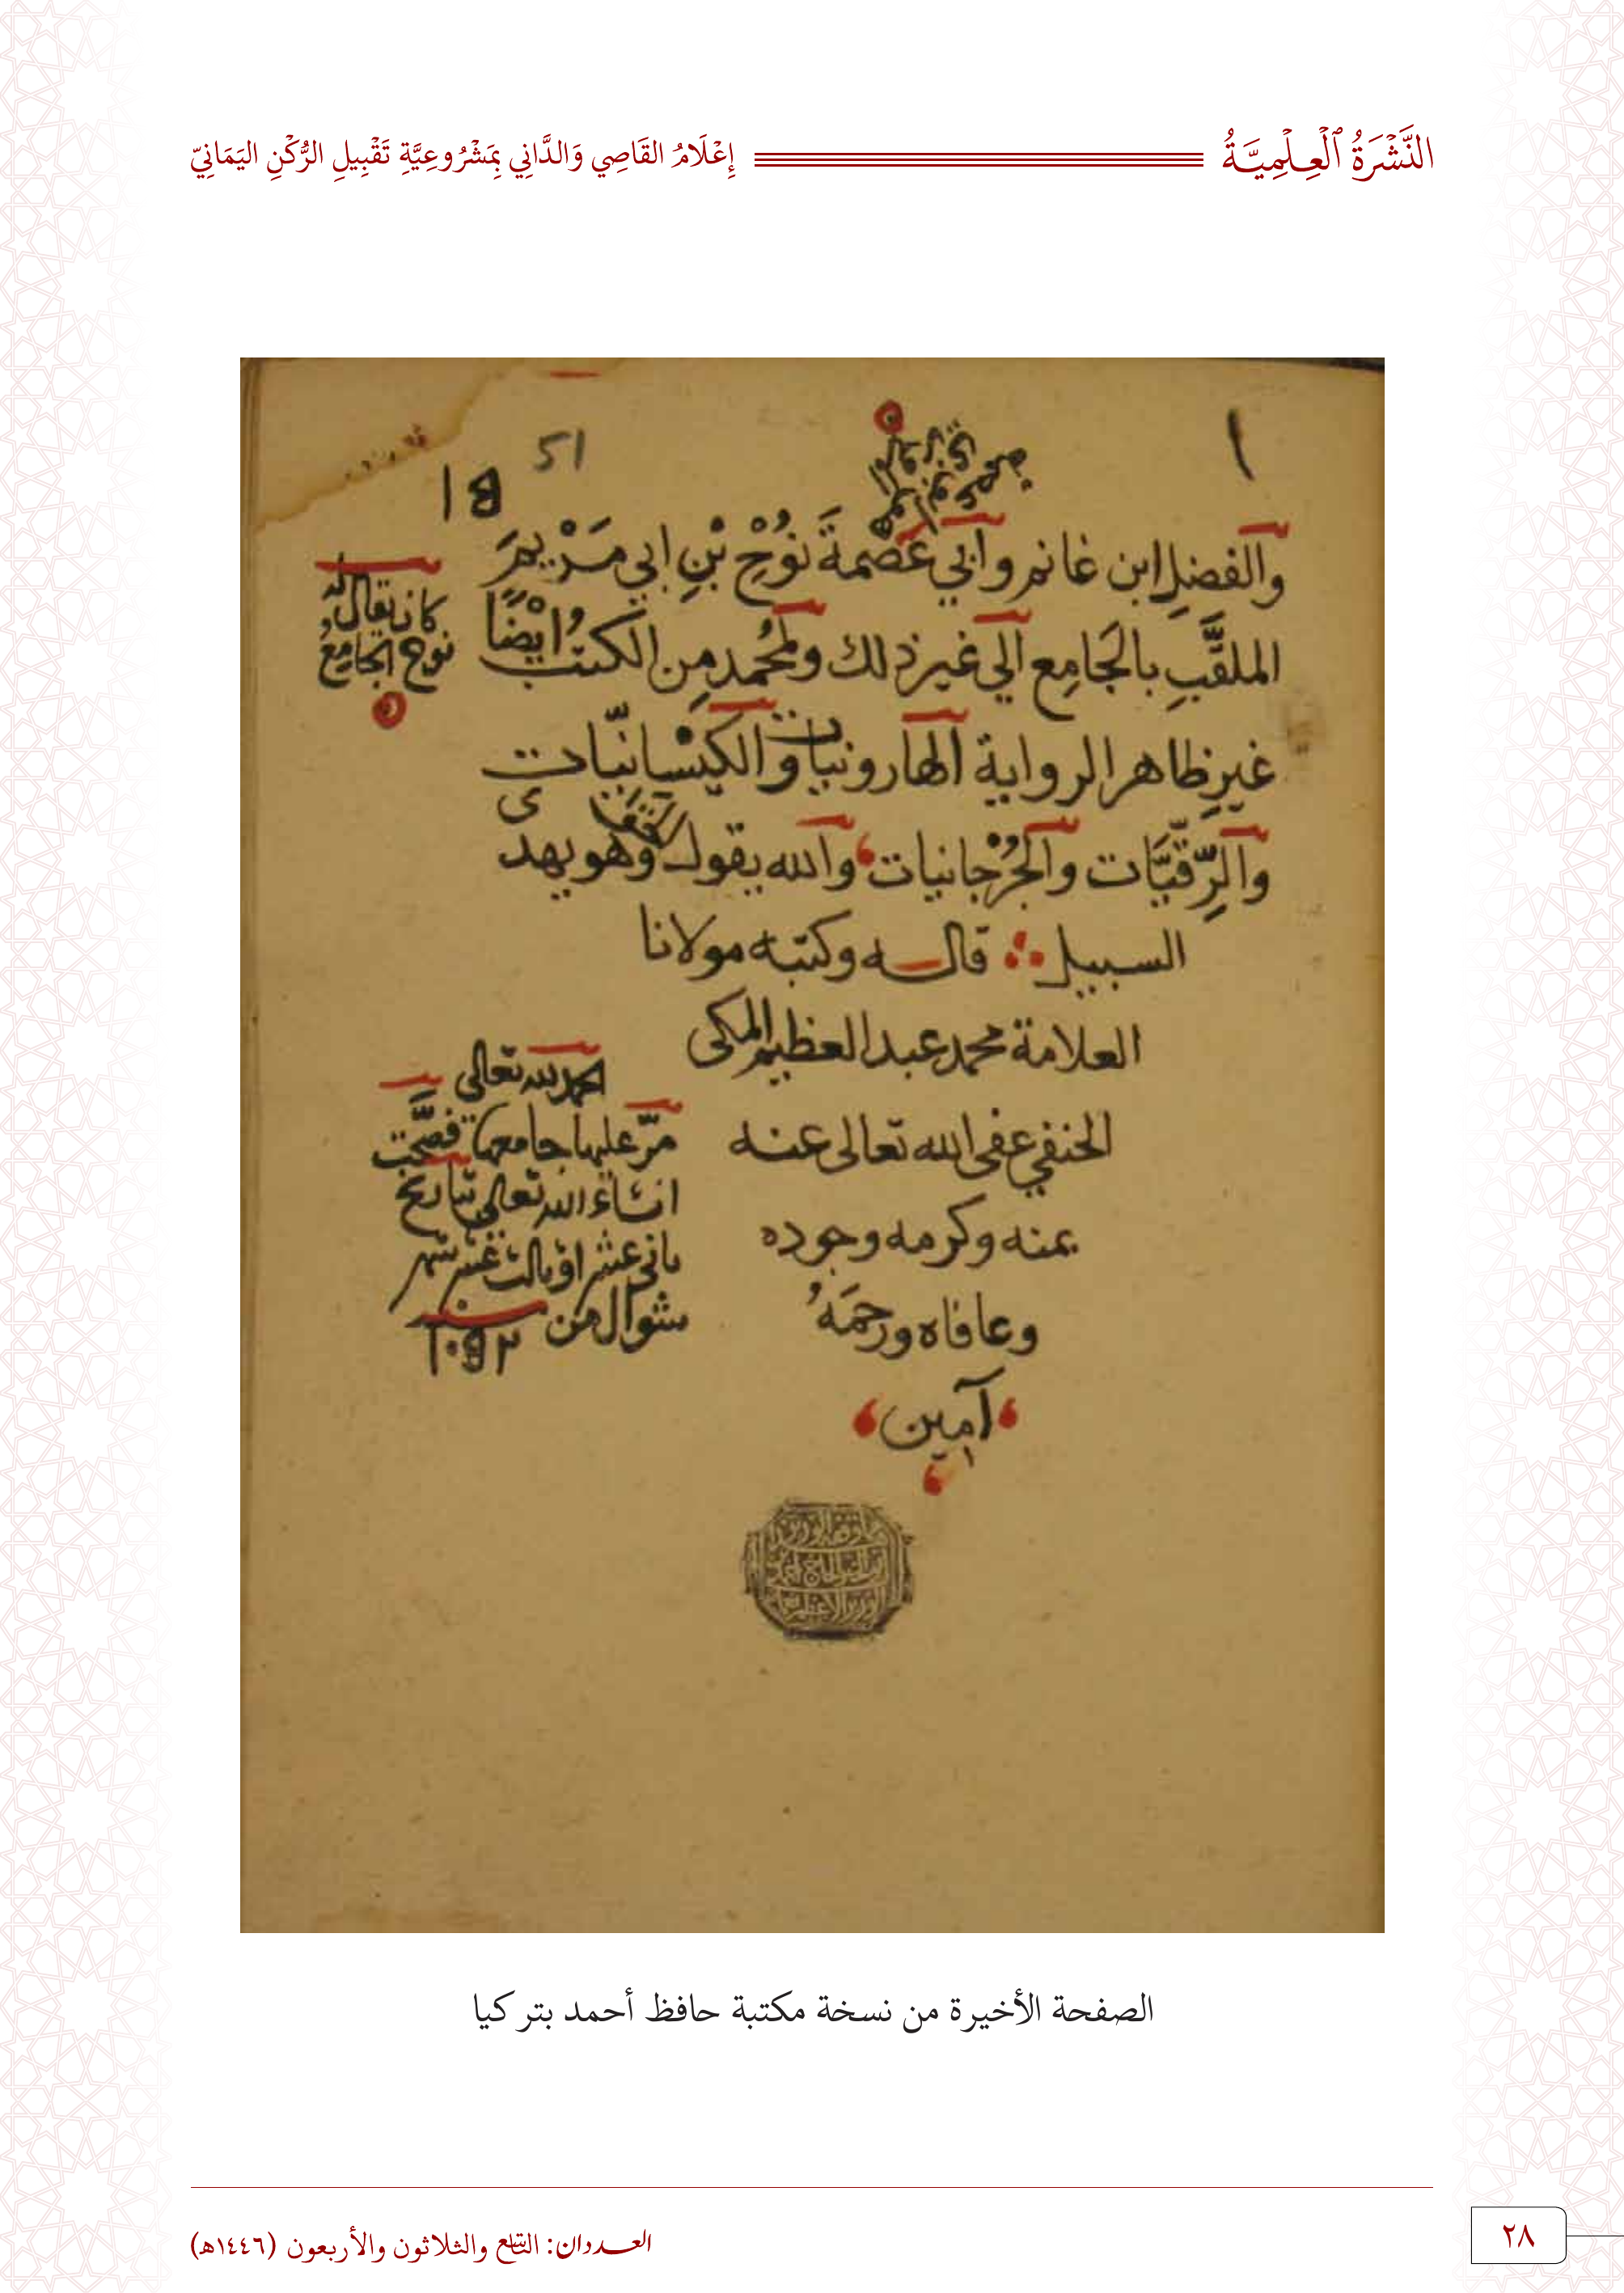 النَّشْرَةُ ٱلْعِلْمِيَّةُ
إِعْلَامُ القَاصِي وَالدَّانِي بِمَشْرُوعِيَّةِ تَقْبِيلِ الرُّكْنِ اليَمَانِيّ
١
51
والفضلِ ابن غانم وابي عصْمةَ نوُحْ بْنِ ابي مَرْيمَ
الملقَّبِ بالجَامِع الي غير ذلك ولمحُمد مِن الكتبُ ايْضًا
كان يقال له
نوح الجامعُ
غيرِ ظاهر الرواية الهارونيات والكيْسانيّات
والرِّقيَّات والجُرْجانيات والله يقول وهو يهدى
السبيل قاله وكتبه مولانا
العلامة محمد عبد العظيم المكى
الحنفي عفى الله تعالى عنه
بمنه وكرمه وجوده
وعافاه ورحمَهُ
آمين
الحمد لله تعالى
مرّ عليها جامعها فصحَّت
ان شاء الله تعالى بتاريخ
ثانى عشر او ثالث عشر شهر
شوال من
١٠٩٢
الصفحة الأخيرة من نسخة مكتبة حافظ أحمد بتركيا
العددان: التاسع والثلاثون والأربعون (١٤٤٦هـ)
٢٨